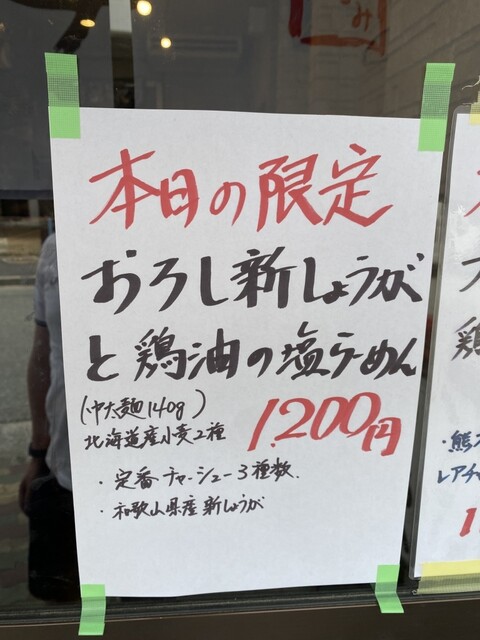 本日の限定
おろし新しょうが
と鶏油の塩らーめん
(中太麺140g)
北海道産小麦2種
1,200円
・定番チャーシュー3種類.
・和歌山県産新しょうが
鶏
・熊
レアチャ
1
み